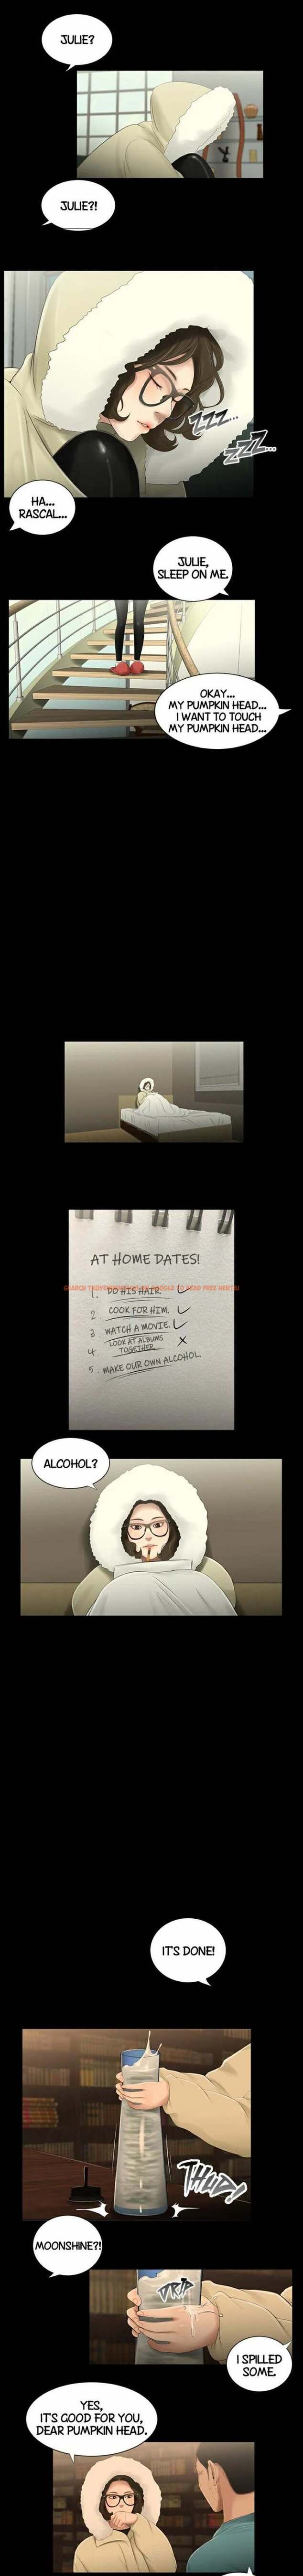 JULIE?
JULIE?!
ZZZ...
ZZZ...
HA...
RASCAL...
JULIE,
SLEEP ON ME.
OKAY...
MY PUMPKIN HEAD...
I WANT TO TOUCH
MY PUMPKIN HEAD...
AT HOME DATES!
1. DO HIS HAIR.
2 COOK FOR HIM.
3 WATCH A MOVIE.
4 LOOK AT ALBUMS
TOGETHER
5. MAKE OUR OWN ALCOHOL.
ALCOHOL?
IT'S DONE!
THUD!
MOONSHINE?!
DRIP
I SPILLED
SOME.
YES,
IT'S GOOD FOR YOU,
DEAR PUMPKIN HEAD.